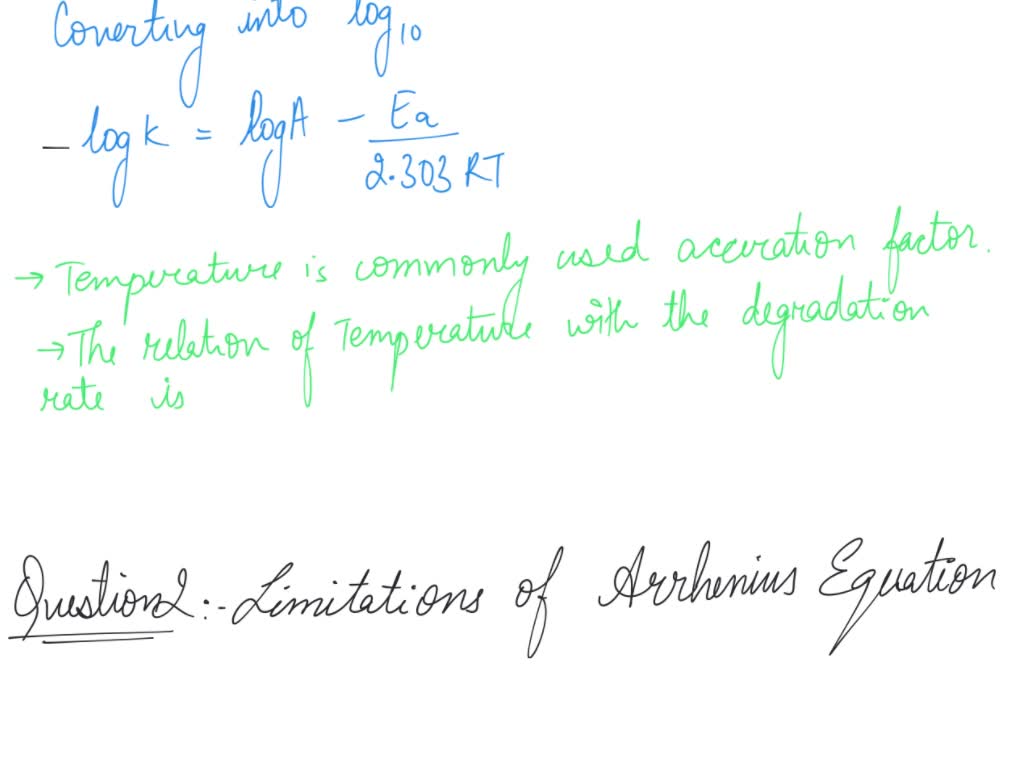 Conerting into log₁₀
– log k = log A – Ea / 2.303 RT
→ Temperature is commonly used acceration factor.
→ The relation of Temperature with the degradation
rate is
Question2 :- Limitations of Arrhenius Equation